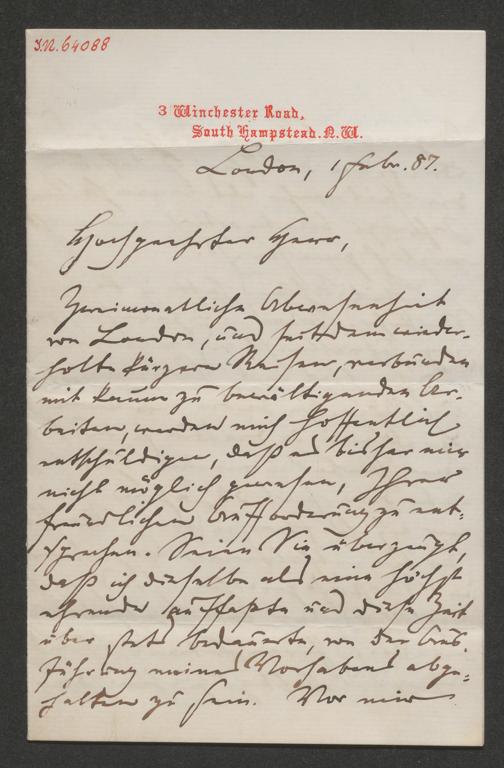 I.N. 64088
3 Winchester Road,
South Hampstead. N.W.
London, 1 Febr. 87.
Hochgeehrter Herr,
Zweimonatliche Abwesenheit
von London, und seitdem wieder-
holte kürzere Reisen, verbunden
mit kaum zu bewältigenden Ar-
beiten, werden mich hoffentlich
entschuldigen, daß es bisher mir
nicht möglich gewesen, Ihrer
freundlichen Aufforderung zu ent-
sprechen. Seien Sie überzeugt,
daß ich dieselbe als eine höchst
ehrende auffaßte und diese Zeit
über stets bedauerte, von der Aus-
führung meines Vorhabens abge-
halten zu sein. Vor mir